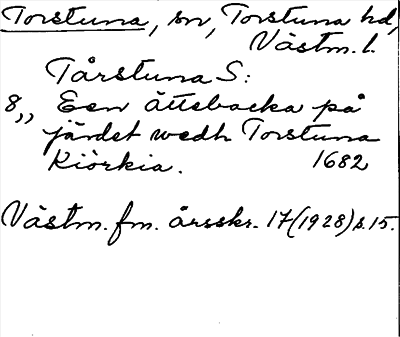 Torstuna, sn, Torstuna hd,
Västm. l.
Tårstuna S:
8,, Een ättebacka på
järdet wedh Torstuna
Kiörkia. 1682
Västm. fm. årsskr. 17 (1928) s. 15.